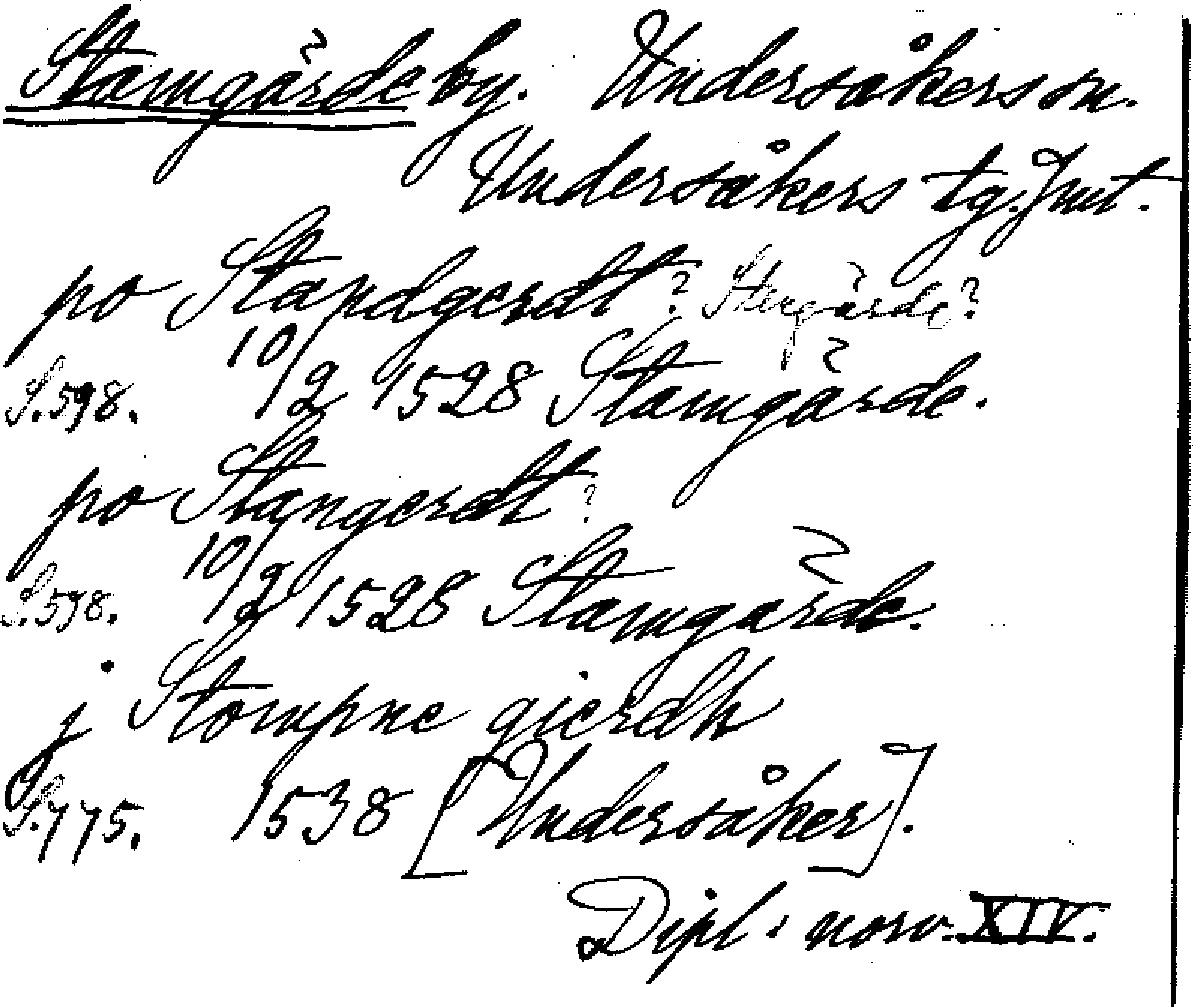 Stamgärde by. Undersåkers sn.
Undersåkers tg. Jmt.
po Stapdgerdt? Stengärde?
S. 598. 10/2 1528 Stamgärde.
po Stangerdt?
S. 598. 10/2 1528 Stamgärde.
j Stompne gierdh
S. 775. 1538 [Undersåker].
Dipl. norv. XIV.